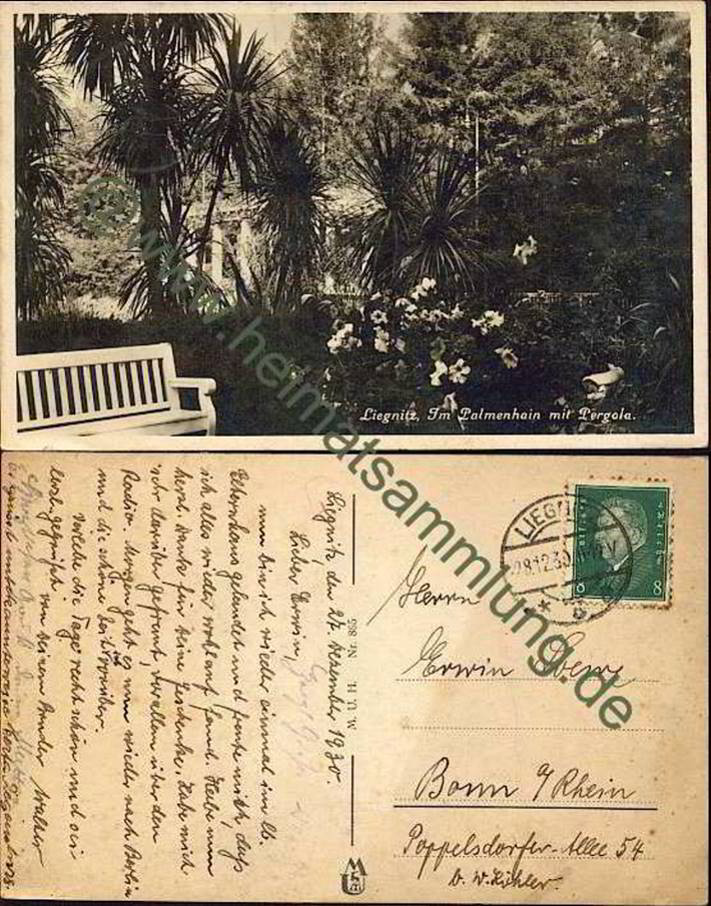 Liegnitz, Im Palmenhain mit Pergola.
www.heimatsammlung.de
Liegnitz, den 27. Dezember 1930.
Lieber Erwin,
nun bin ich wieder einmal im lb.
Elternhaus gelandet und freute mich, daß
ich alles wieder wohlauf fand. Habe nun
herzl. Dank für Deine Geschenke. Habe mich
sehr darüber gefreut, vor allen über den
Radio. Morgen geht es nun wieder nach Berlin
und die schöne Zeit ist vorüber.
die Tage recht schön und sei
herzl. gegrüßt von Deinem Bruder Walter
M. U. H. Nr. 855
LIEGNITZ
28.12.30
8 8
Herrn
Erwin
Bonn a/Rhein
Poppelsdorfer-Allee 54
b. W. Köhler.